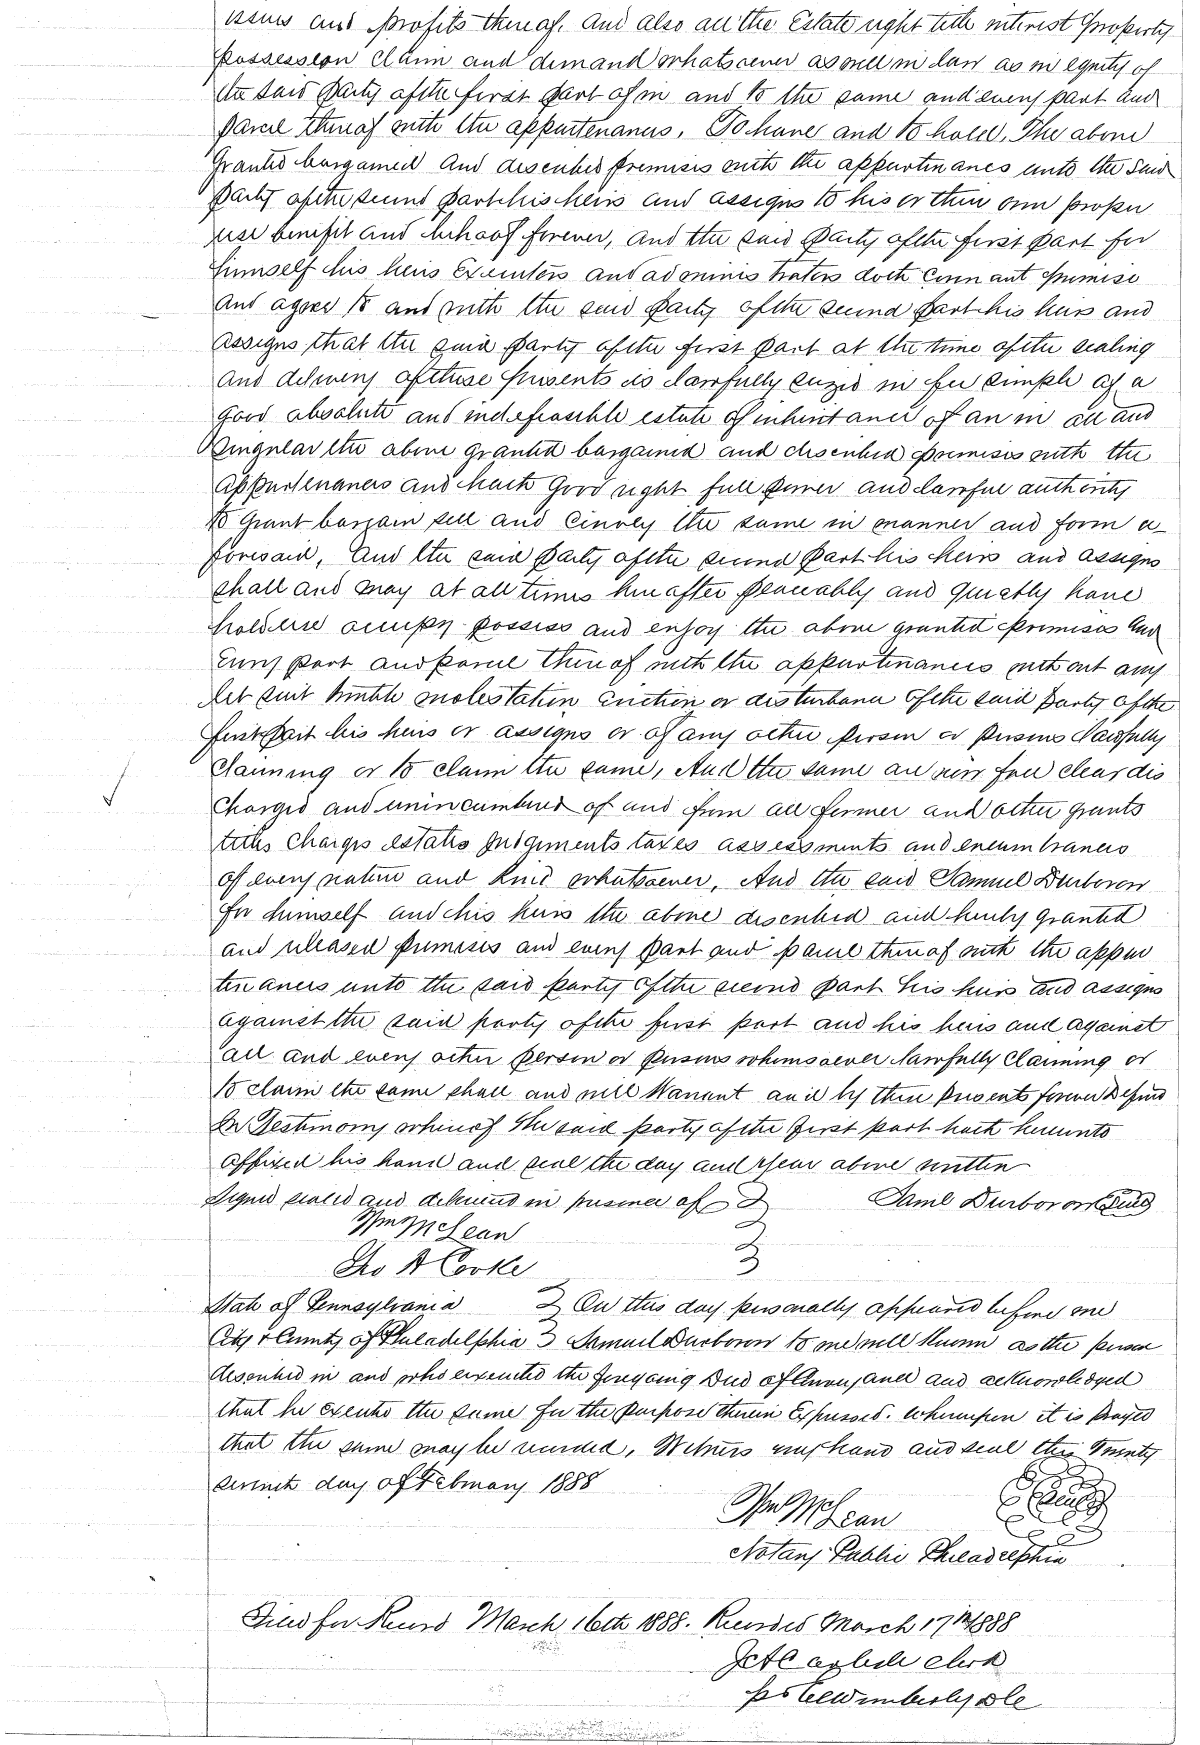 issues and profits thereof. And also all the Estate right title interest Property
possession claim and demand whatsoever as well in law as in equity of
the said Party of the first part of in and to the same and every part and
parcel thereof with the appurtenances. To have and to hold, The above
Granted bargained And described premises with the appurtenances unto the Said
Party of the second part his heirs and assigns to his or their own proper
use benefit and behoof forever, and the said Party of the first part for
himself his heirs Executors and administrators doth covenant promise
and agree to and with the said Party of the second part his heirs and
assigns that the said party of the first part at the time of the sealing
and delivery of these presents is lawfully seized in fee simple of a
Good absolute and indefeasible estate of inheritance of an in all and
Singular the above granted bargained and described premises with the
appurtenances and hath Good right full power and lawful authority
to Grant bargain sell and convey the same in manner and form a-
foresaid, And the said Party of the second part his heirs and assigns
shall and may at all times hereafter peaceably and quietly have
hold use occupy possess and enjoy the above granted premises and
Every part and parcel thereof with the appurtenances without any
let suit trouble molestation Eviction or disturbance of the said Party of the
first part his heirs or assigns or of any other person or persons lawfully
Claiming or to claim the same, And the same are now free clear dis
charged and unincumbered of and from all former and other grants
titles charges estates Judgments taxes assessments and encumbrances
of every nature and kind whatsoever, And the said Samuel Durborow
for himself and his heirs the above described and hereby granted
and released premises and every part and parcel thereof with the appur
tenances unto the said party of the second part his heirs and assigns
against the said party of the first part and his heirs and against
all and every other person or persons whomsoever lawfully Claiming or
to claim the same shall and will Warrant and by these presents forever Defend
In Testimony whereof The said party of the first part hath hereunto
affixed his hand and seal the day and Year above written
Signed sealed and delivered in presence of Saml Durborow Seal
Wm McLean
Tho A Cooke
State of Pennsylvania On this day personally appeared before me
City & County of Philadelphia Samuel Durborow to me well known as the person
described in and who executed the foregoing Deed of Conveyance and acknowledged
that he executed the same for the purpose therein Expressed. Whereupon it is Prayed
that the same may be recorded, Witness my hand and seal this Twenty
seventh day of February 1888
Wm McLean Seal
Notary Public Philadelphia
Filed for Record March 16th 1888. Recorded March 17th 1888
Clerk
Wimberly